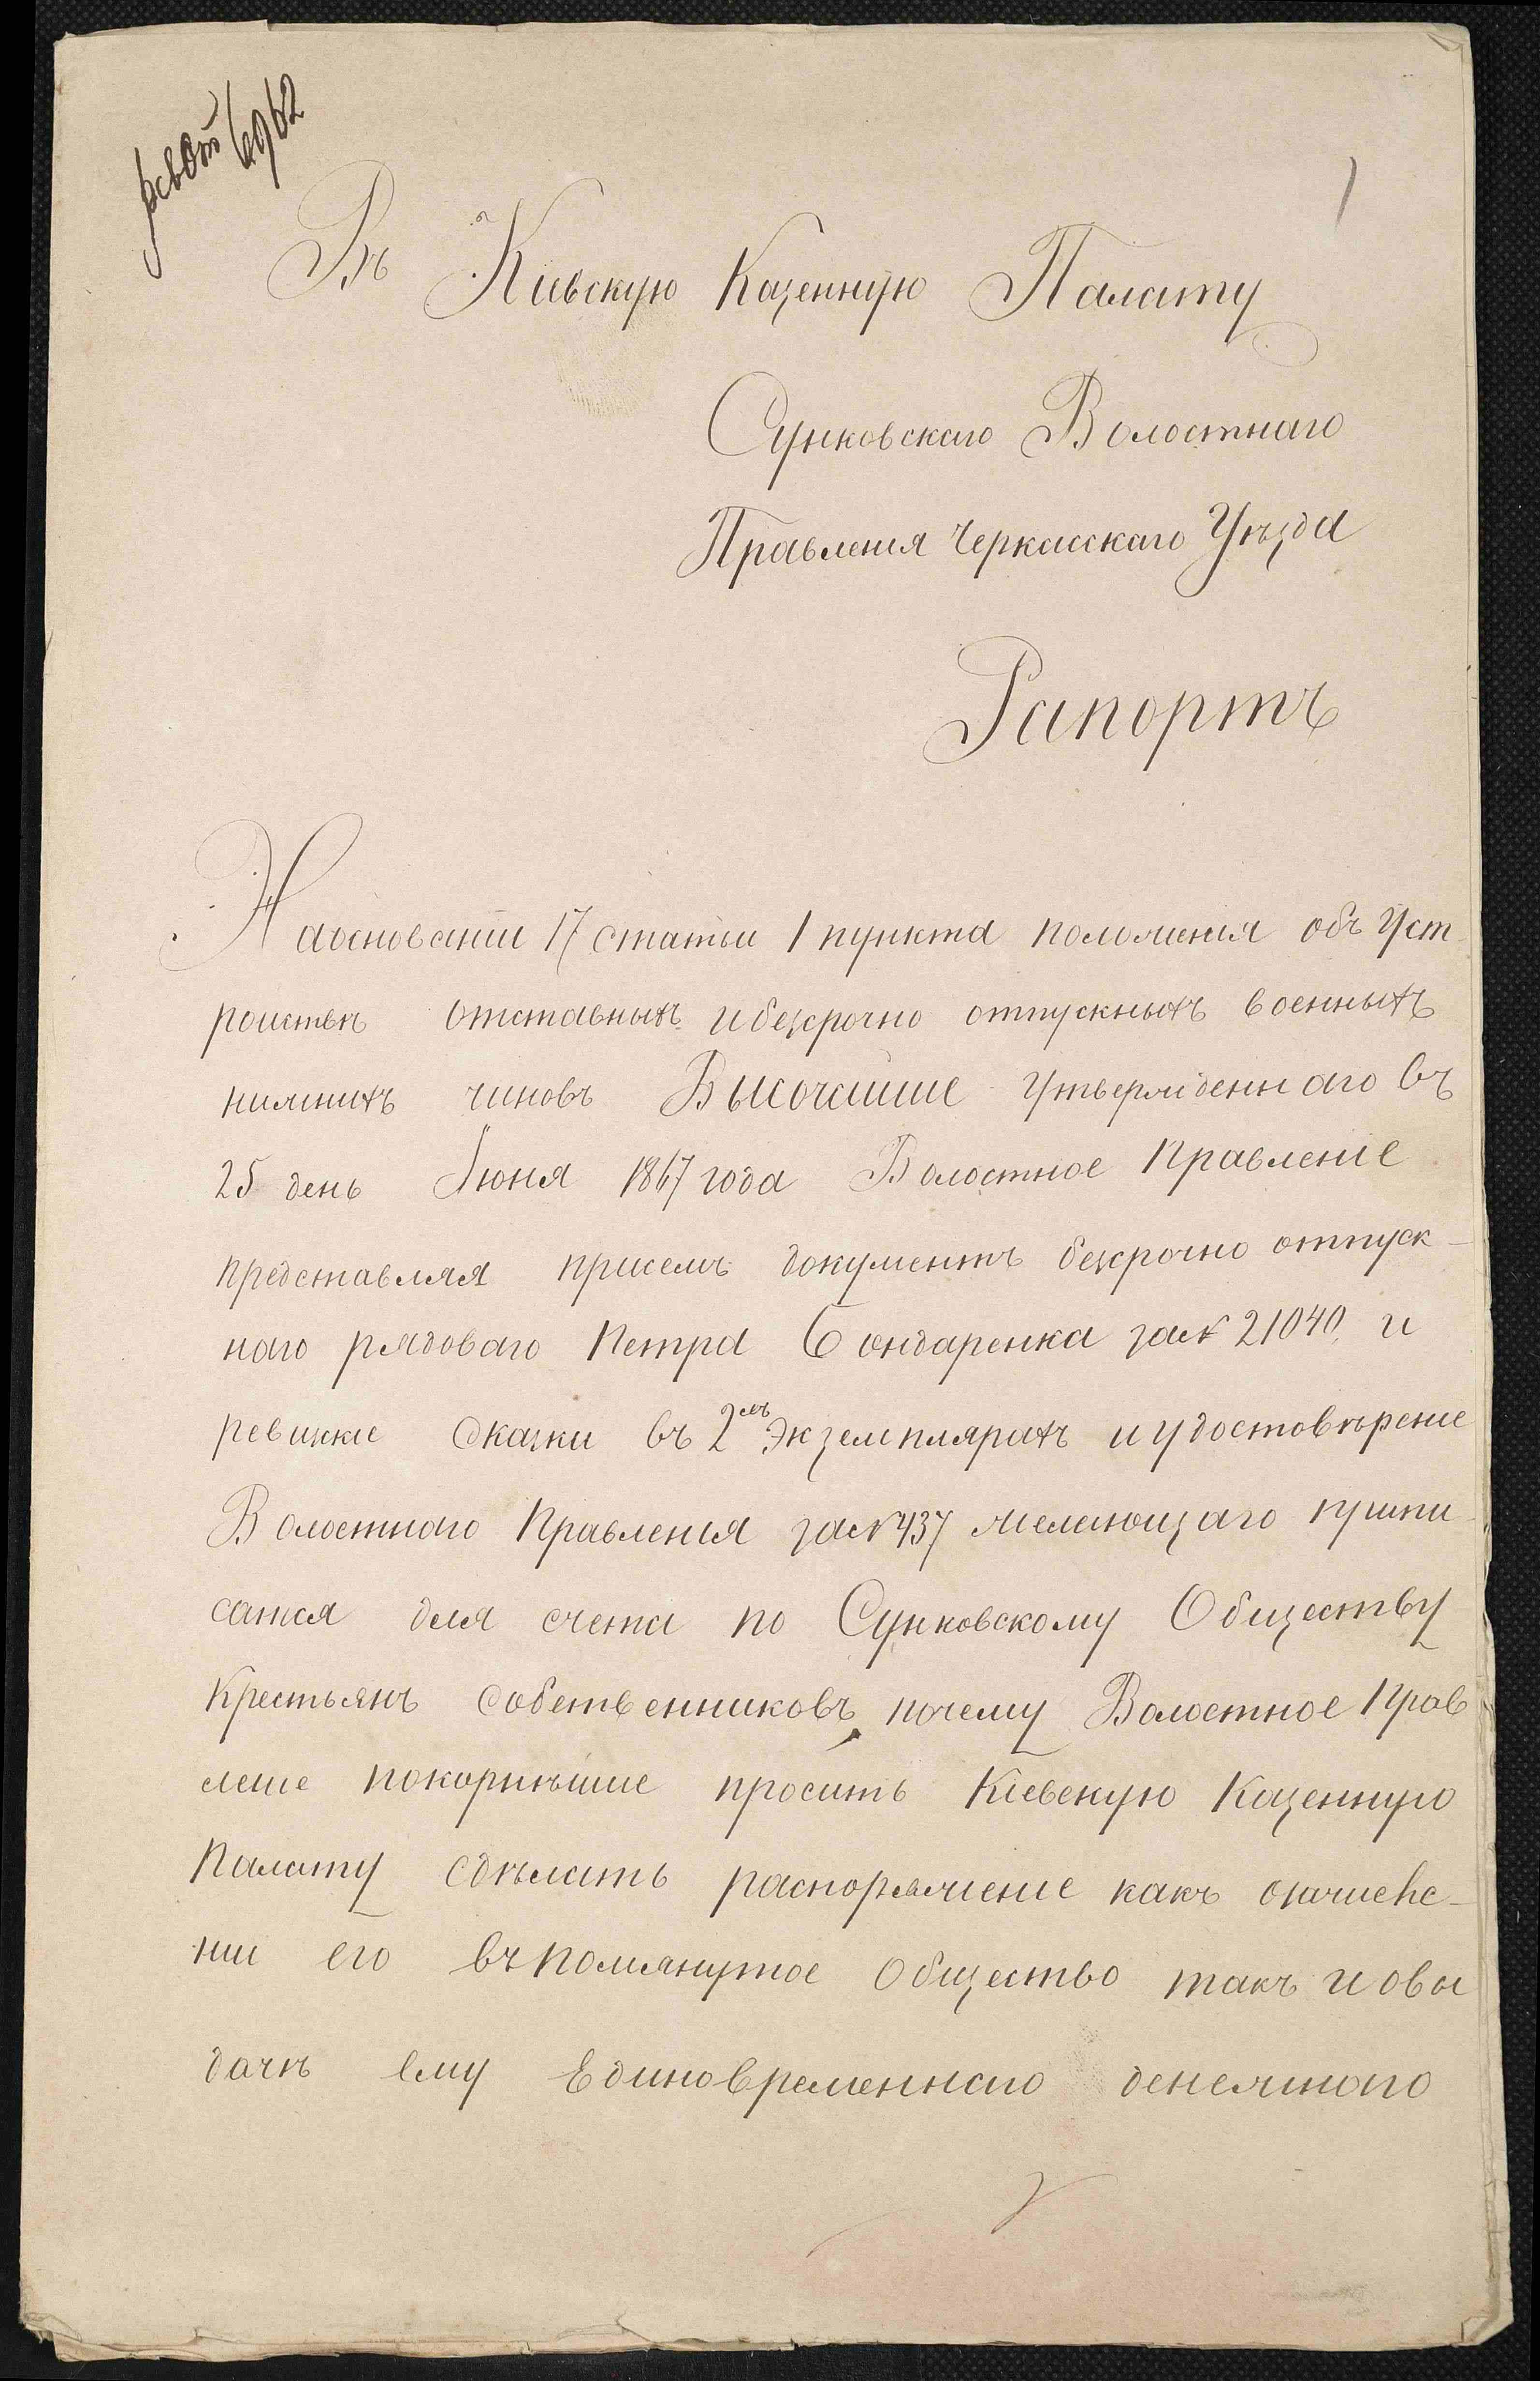 1
Въ Кіевскую Казенную Палату
Сунковскаго Волостнаго
Правленія Черкасскаго Уѣзда
Рапортъ
Наосновании 17 статьи 1 пункта положенія объ Уст
роистве отставныхъ и безсрочно отпускныхъ военныхъ
нижнихъ чиновъ Высочайше утвержденнаго въ
25 день Іюня 1867 года Волостное Правленіе
представляя присемъ документъ безсрочно отпуск-
наго рядоваго Петра Бондаренка за № 21040 и
ревизкіе сказки въ 2хъ экземплярахъ и удостовѣреніе
Волостнаго Правленія за № 437 желающаго припи
сатся для счета по Сунковскому Обществу
Крестьянъ собственниковъ, почему Волостное Прав
леніе покорнѣйше проситъ Кіевскую Казенную
Палату сдѣлать распоряженіе какъ озачисле-
ніи его въ помянутое Общество такъ и овы
дачѣ ему Единовременнаго денежнаго